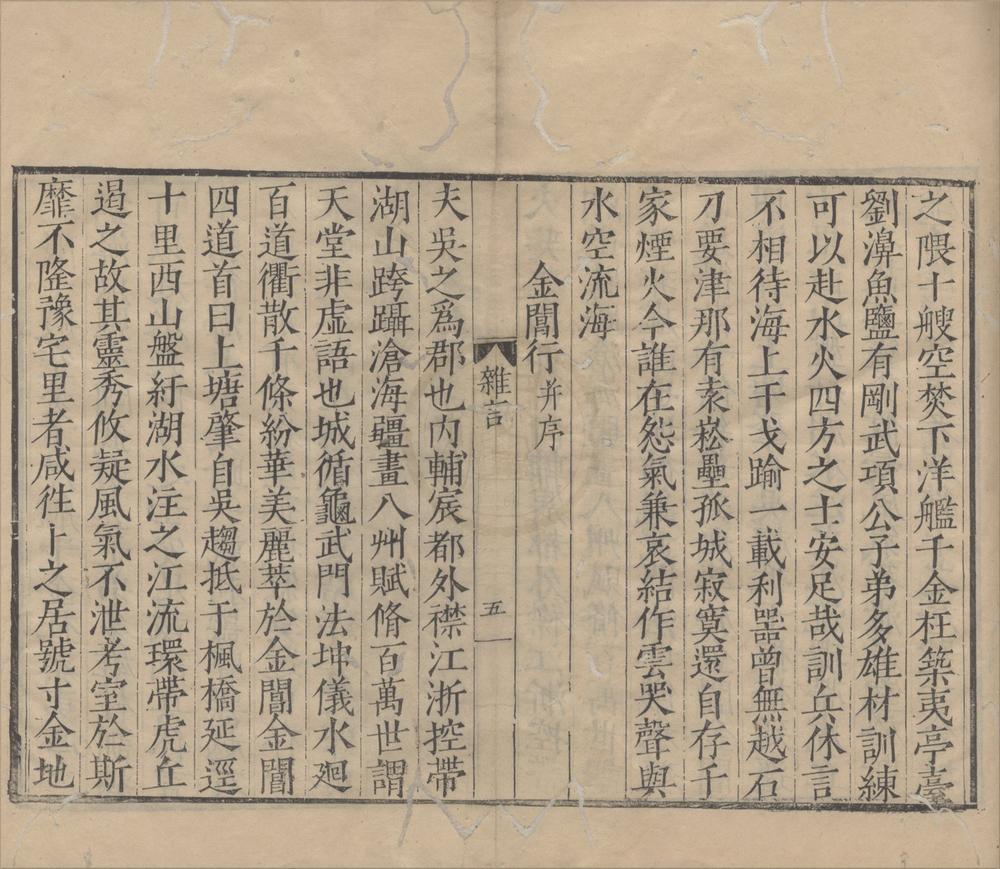 之隈十艘空焚下洋艦千金枉築夷亭臺
劉濞魚鹽有剛武項公子弟多雄材訓練
可以赴水火四方之士安足哉訓兵休言
不相待海上干戈踰一載利器曾無越石
刀要津那有袁崧壘孤城寂寞還自存千
家煙火今誰在怨氣兼哀結作雲哭聲與
水空流海
金閶行并序
雜言
五
夫吳之爲郡也内輔宸都外襟江浙控帶
湖山跨躡滄海疆畫八州賦脩百萬世謂
天堂非虛語也城循龜武門法坤儀水廻
百道衢散千條紛華美麗萃於金閶金閶
四道首曰上塘肇自吳趨抵于楓橋延逕
十里西山盤紆湖水注之江流環帶虎丘
遏之故其靈秀攸凝風氣不泄考室於斯
靡不隆豫宅里者咸徃卜之居號寸金地